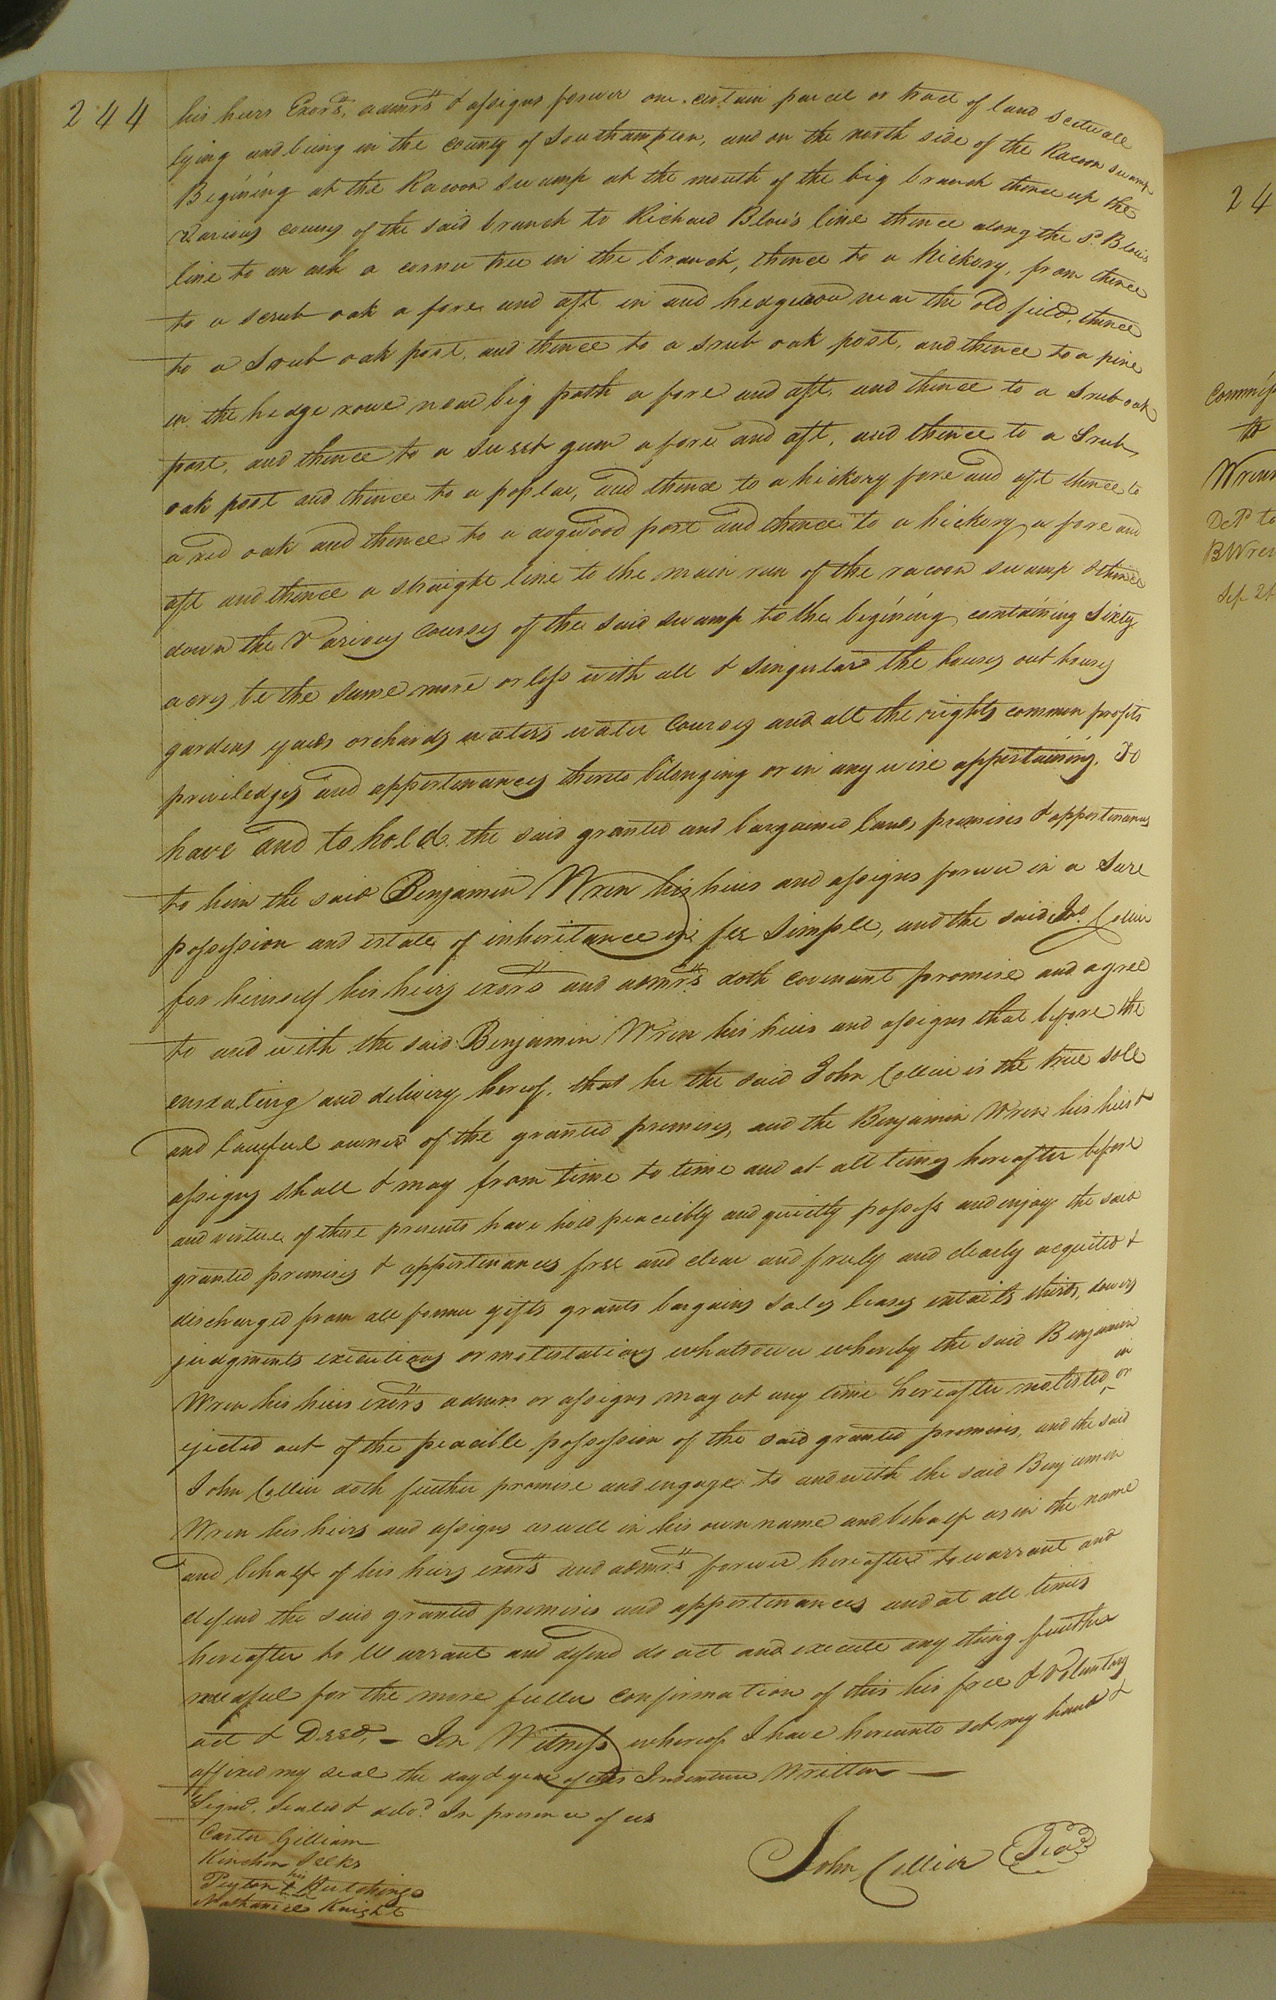 244
his heirs Exors, admrs & assigns forever one certain parcel or tract of land scituate
lying and being in the county of Southampton, and on the north side of the Racoon swamp
Begining at the Racoon swamp at the mouth of the big branch thence up the
various courses of the said branch to Richard Blow's line thence along the sd. Blow's
line to an ash a corner tree in the branch, thence to a hickory, from thence
to a scrub oak a fore and aft in and hedgerow near the old field, thence
to a Srub oak post, and thence to a srub oak post, and thence to a pine
in the hedge rowe near big path a fore and aft, and thence to a Srub oak
post, and thence to a sweet gum a fore and aft, and thence to a Srub
oak post and thence to a poplar, and thence to a hickory fore and aft thence to
a red oak and thence to a dogwood post and thence to a hickory a fore and
aft and thence a straight line to the main run of the racoon swamp & thence
down the various courses of the said swamp to the begining containing Sixty
acres be the same more or less with all & singular the houses out houses
gardens yards orchards waters water courses and all the rights common profits
priviledges and appertenances thereto belonging or in any wise appertaining. To
have and to hold the said granted and bargained lands premises & appertenances
to him the said Benjamin Wren his heirs and assigns forever in a Sure
possession and estate of inheritance in fee simple, and the said Jno. Collier
for himself his heirs exors and admrs doth covenant promise and agree
to and with the said Benjamin Wren his heirs and assigns that before the
ensealing and delivery hereof, that he the said John Collier is the true sole
and lawful owner of the granted premises, and the Benjamin Wren his heirs &
assigns shall & may from time to time and at all times hereafter before
and virtue of these presents have hold peacebly and quietly possess and enjoy the said
granted premises & appertenances free and clear and freely and clearly acquited &
discharged from all former gifts grants bargains sales leases entails thirds, dowers
judgments executions or molestations whatsoever whereby the said Benjamin
Wren his heirs exors admrs or assigns may at any time hereafter molested in or
ejected out of the peacible possession of the said granted premises, and the said
John Collier doth further promise and engage to and with the said Benjamin
Wren his heirs and assigns as well in his own name and behalf as in the name
and behalf of his heirs exors and admrs forever hereafter to warrant and
defend the said granted premises and appertenances and at all times
hereafter to Warrant and defend do act and execute any thing further
needful for the more fuller confirmation of this his free & voluntary
act & Deed, — In Witness whereof I have hereunto set my hand &
affixed my seal the day & year of this Indenture Written —
Signd. Sealed & deld. In presence of us
Carter Gilliam
Kinchen Seeks
his
Peyton Hutchings
Nathaniel Knight
John Collier Seal
24
Commiss
to
Wrens
Ded to
B Wren
Sep 2